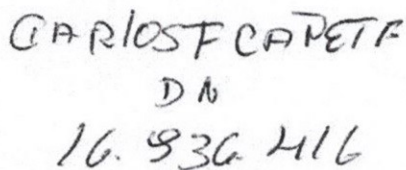 CARLOS F CAÑETE
DN
16.936.416